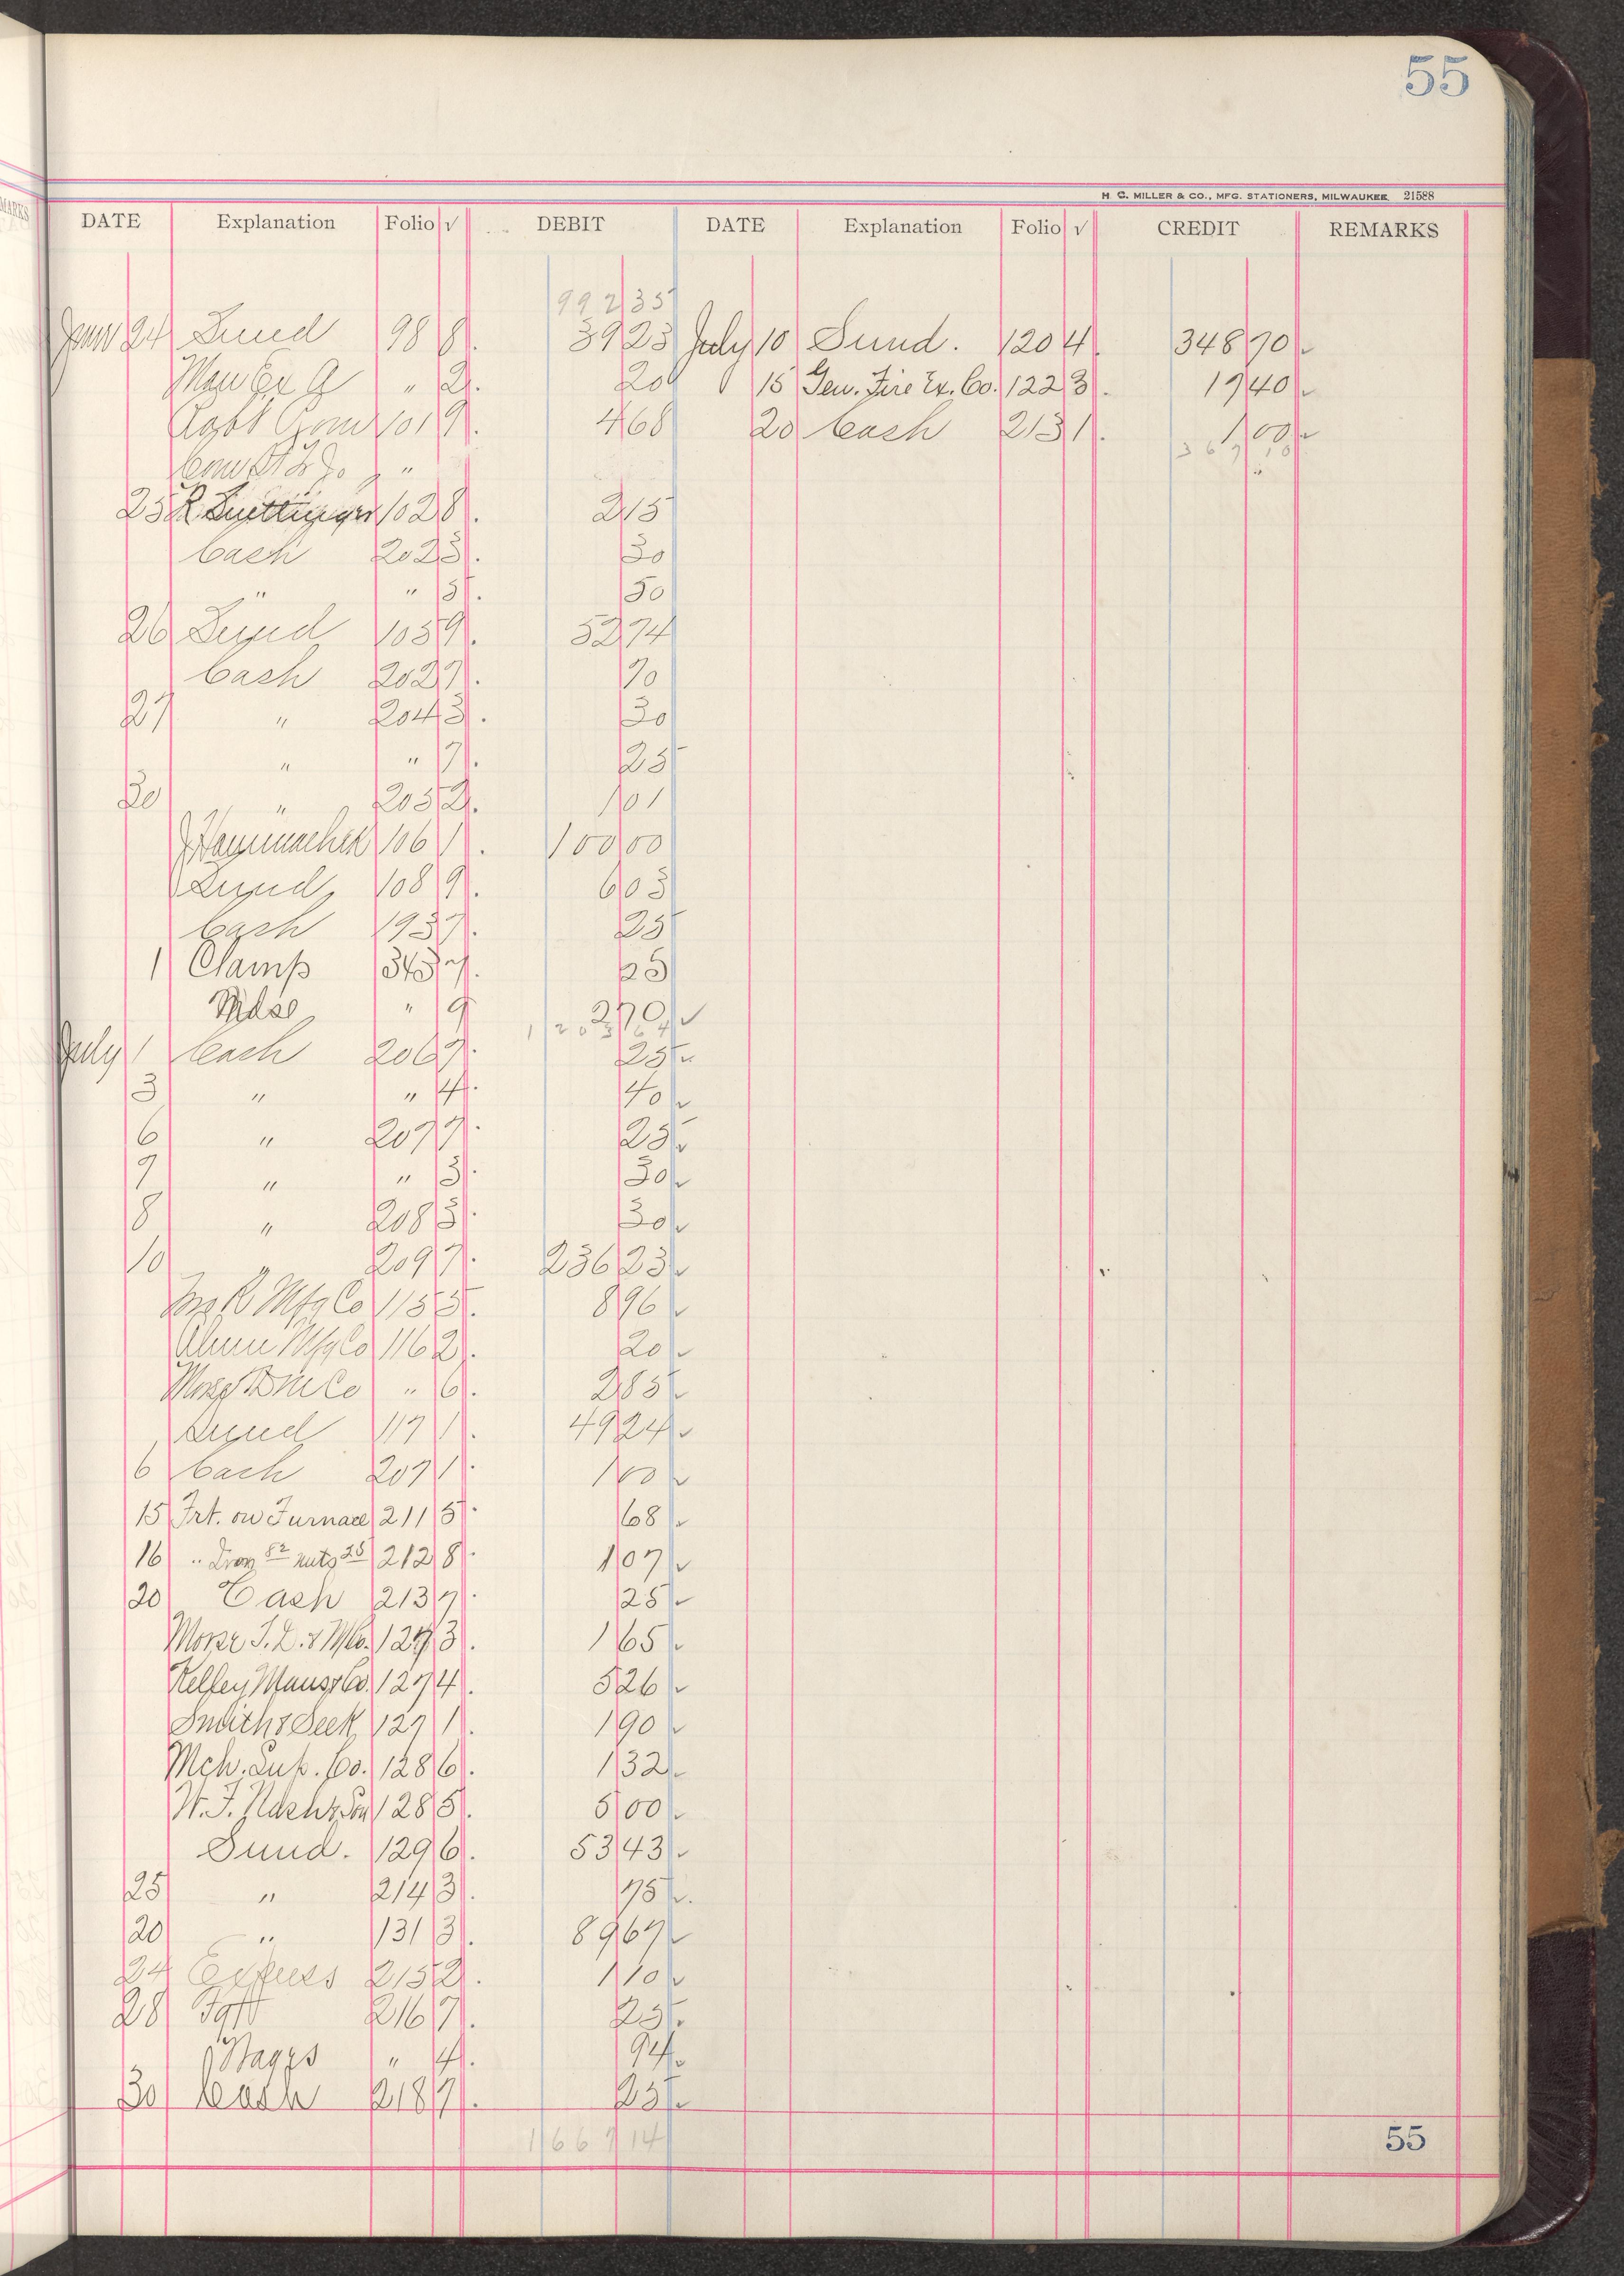 55
H. C. MILLER & CO., MFG. STATIONERS, MILWAUKEE 21588
MARKS
DATE Explanation Folio √ DEBIT DATE Explanation Folio √ CREDIT REMARKS
992 35
24 Sund 98 8 39 23 July 10 Sund. 120 4 348 70
Man Ex " 2 20 15 Gen. Fire Ex. Co. 122 3 19 40
101 9 4 68 20 Cash 213 1 1 00
"
367 10
25 102 8 2 15
Cash 202 3 30
" " 5 50
26 Sund 105 9 52 74
Cash 202 7 70
27 " 204 3 30
" " 7 25
30 " 205 2 1 01
J Hammacher 106 1 100 00
Sund 108 9 6 03
Cash 193 7 25
1 Clamp 343 7 25
Mdse " 9 2 70
1203 64
July 1 Cash 206 7 25
3 " " 4 40
6 " 207 7 25
7 " " 3 30
8 " 208 3 30
10 " 209 7 236 23
Mfg Co 115 5 8 96
Alum Mfg Co 116 2 20
Morse " 6 2 85
Sund 117 1 49 24
6 Cash 207 1 1 60
15 Frt. on Furnace 211 5 68
16 " Iron 82 nuts 25 212 8 1 07
20 Cash 213 7 25
Morse T. D. & M Co. 127 3 1 65
Kelley Maus & Co. 127 4 5 26
Smith & Seek 127 1 1 90
Mch. Sup. Co. 128 6 1 32
W. F. Nash & Son 128 5 5 00
Sund. 129 6 53 43
25 " 214 3 75
20 " 131 3 89 67
24 Express 215 2 1 10
28 Fgt 216 7 25
Waggs " 4 94
30 Cash 218 7 25
1667 14
55